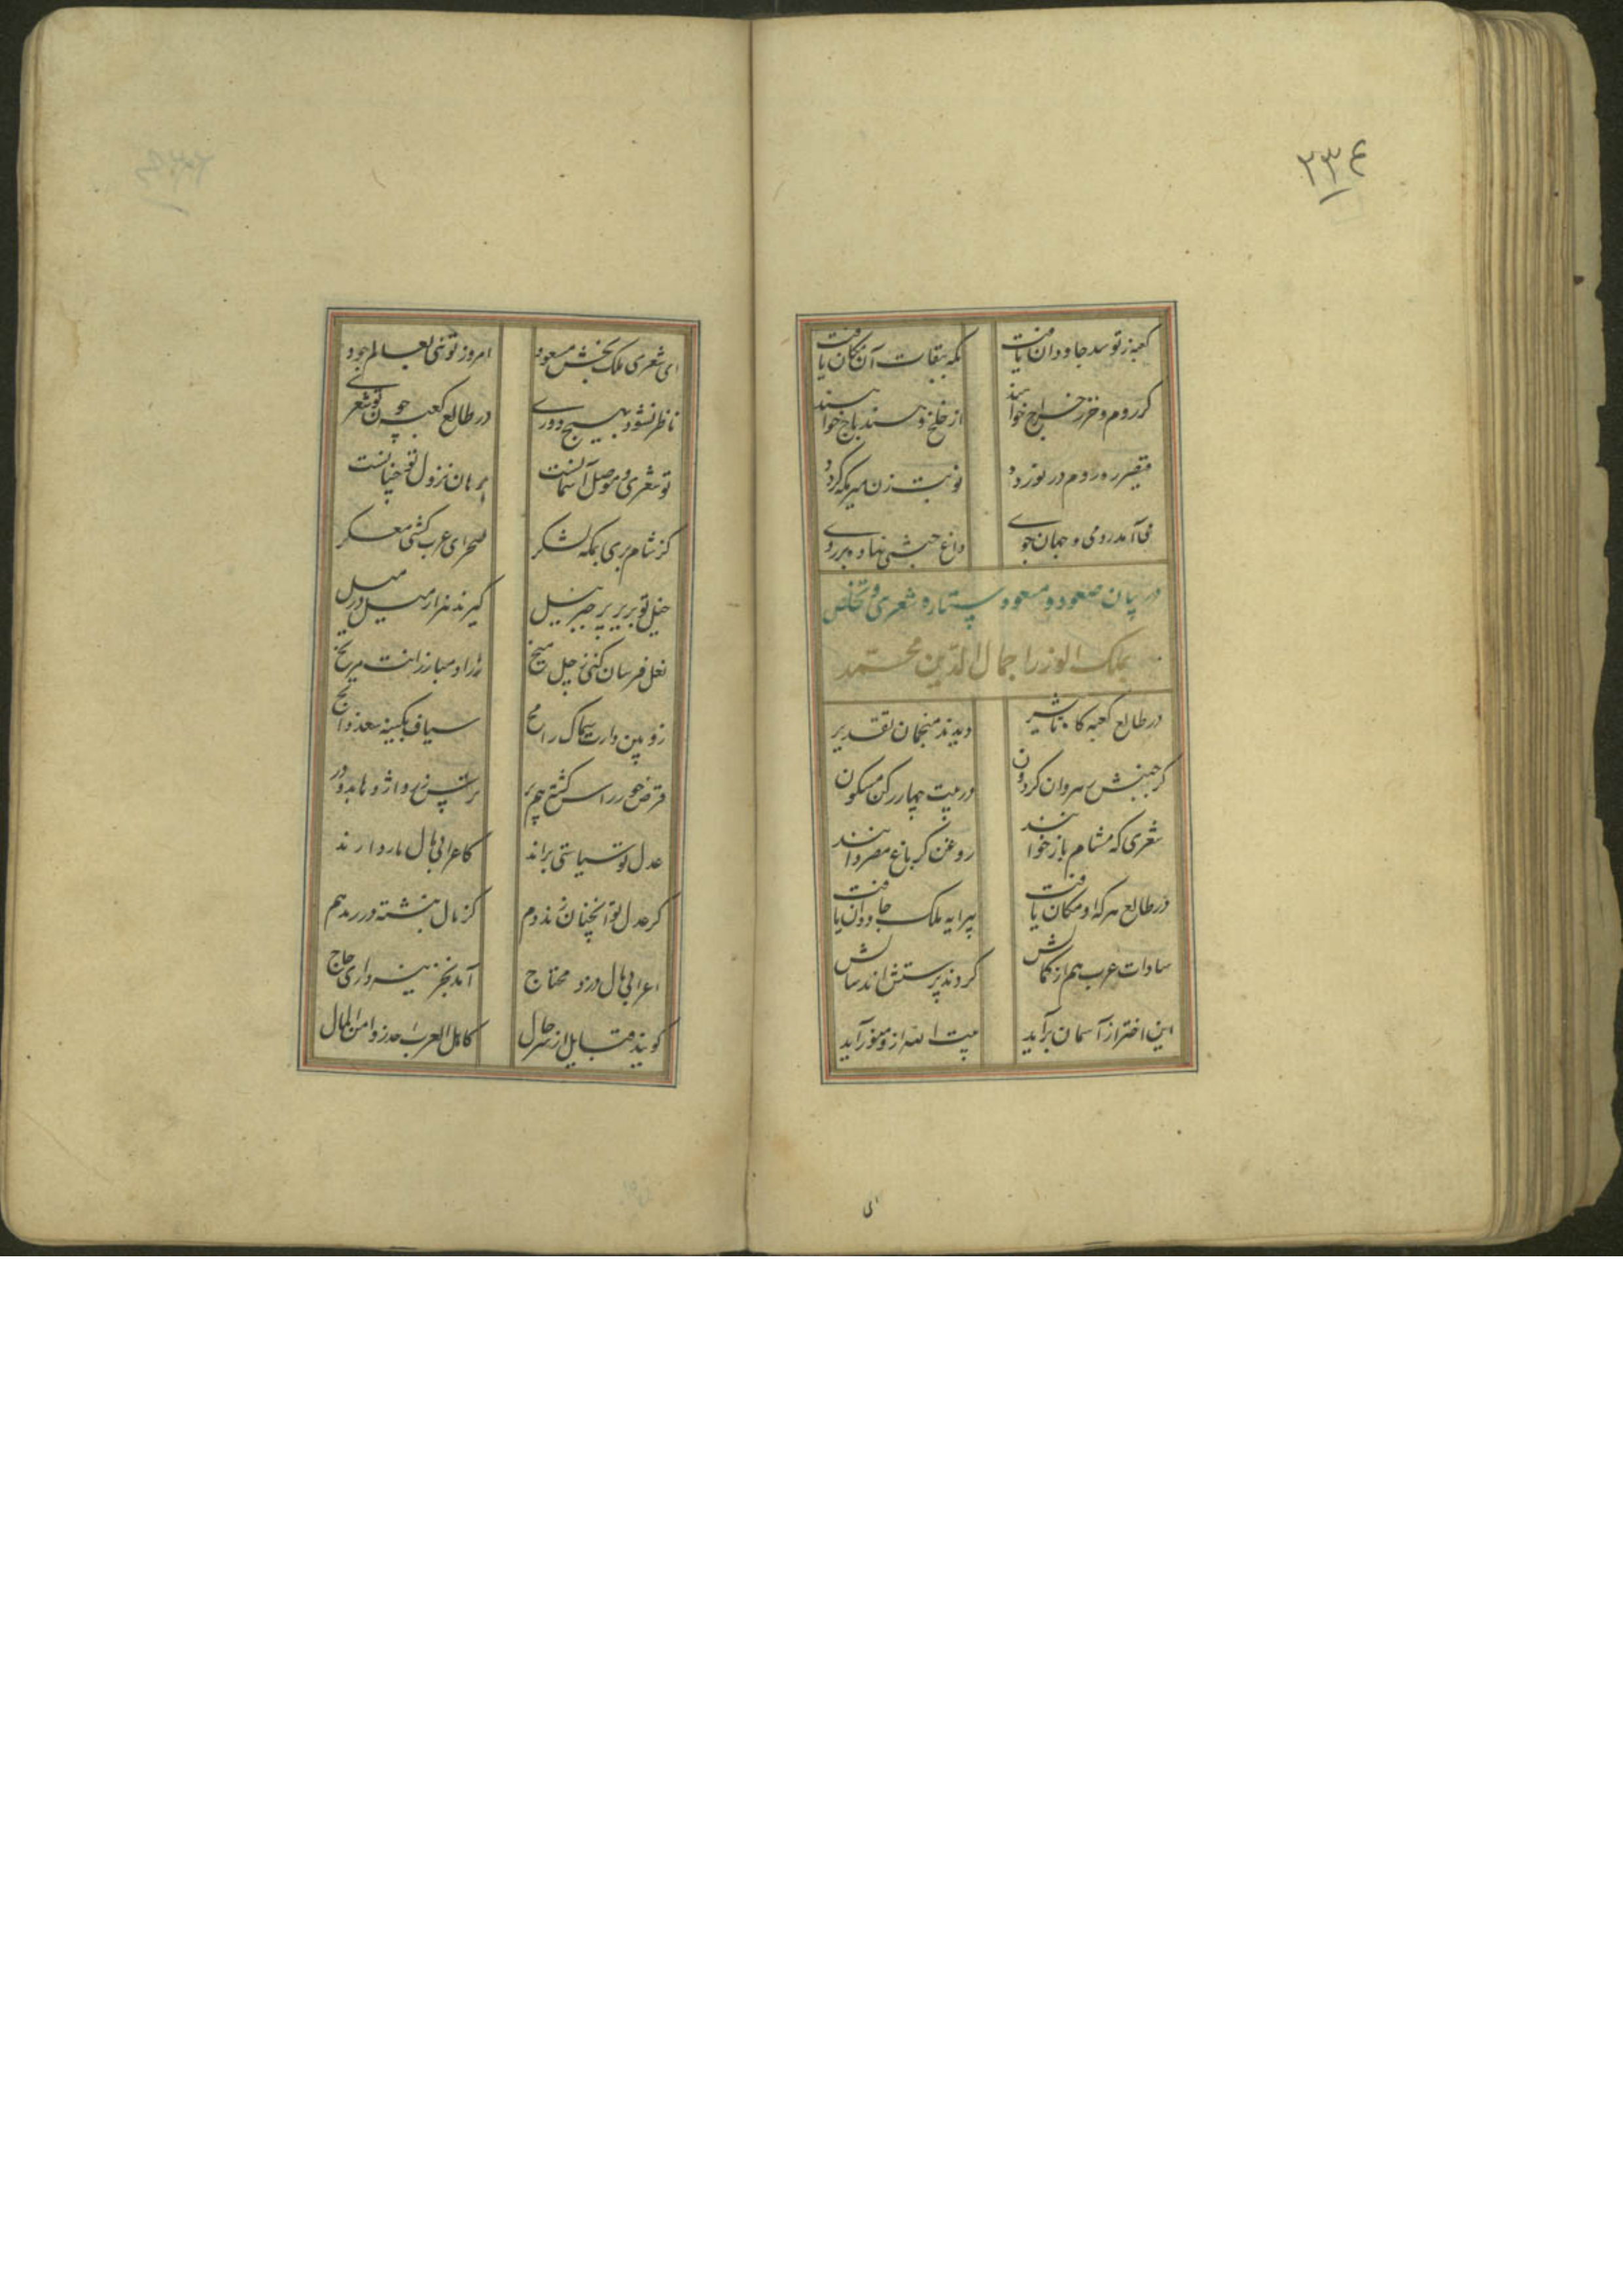 ٢٣٤
کعبه ز تو سد جاودان یافت مکه بقات آن مکان یافت
کز روم و خزر خراج خواهند از خلخ و هند باج خواهند
قیصر ره روم در نوردد نوبت زن میر مکه گردد
می آمد رومی و جهان جوی داغ حبشی نهاده بر روی
در بیان صعود و مسعود ستاره شعری و تخلص
بملک الوزرا جمال الدین محمد
در طالع کعبه گاه تاثیر دیدند منجمان تقدیر
کز جنبش رهروان گردون در بیت چهار رکن مسکون
شعری که مشام باز خوانند روغن گر باغ مصر دانند
در طالع هر که او مکان یافت پیرایه ملک جاودان یافت
سادات عرب هم از کمالش کردند پرستش اند سالش
این اختر از آسمان برآید بیت الله ازو منور آید
ای شعری ملک بخش مسعود امروز توئی بعالم جود
ناظر نشود بهیچ دوری در طالع کعبه چون تو شعری
تو شعری و موصل آسمانست برهان نزول تو چنانست
کز شام بری بمکه لشکر صحرای عرب کنی معسکر
خیل تو بزیر پر جبریل گیرند هزار میل در میل
نعل فرسان کنی ز چل میخ زراد و مبارزانت مریخ
زوبین دارت سماک رامح سیاف کمینه سعد ذابح
قرص خور راس گشته چم بر
عدل تو سیاستی براند کاعرابی مال باز داند
کز عدل تو آنچنان شد مردم کز مال نبشته در
اعرابی مال دزد محتاج آمد بخزینه داری حاج
گویند قبایل از سر حال کاهل العرب احرزوا من المال